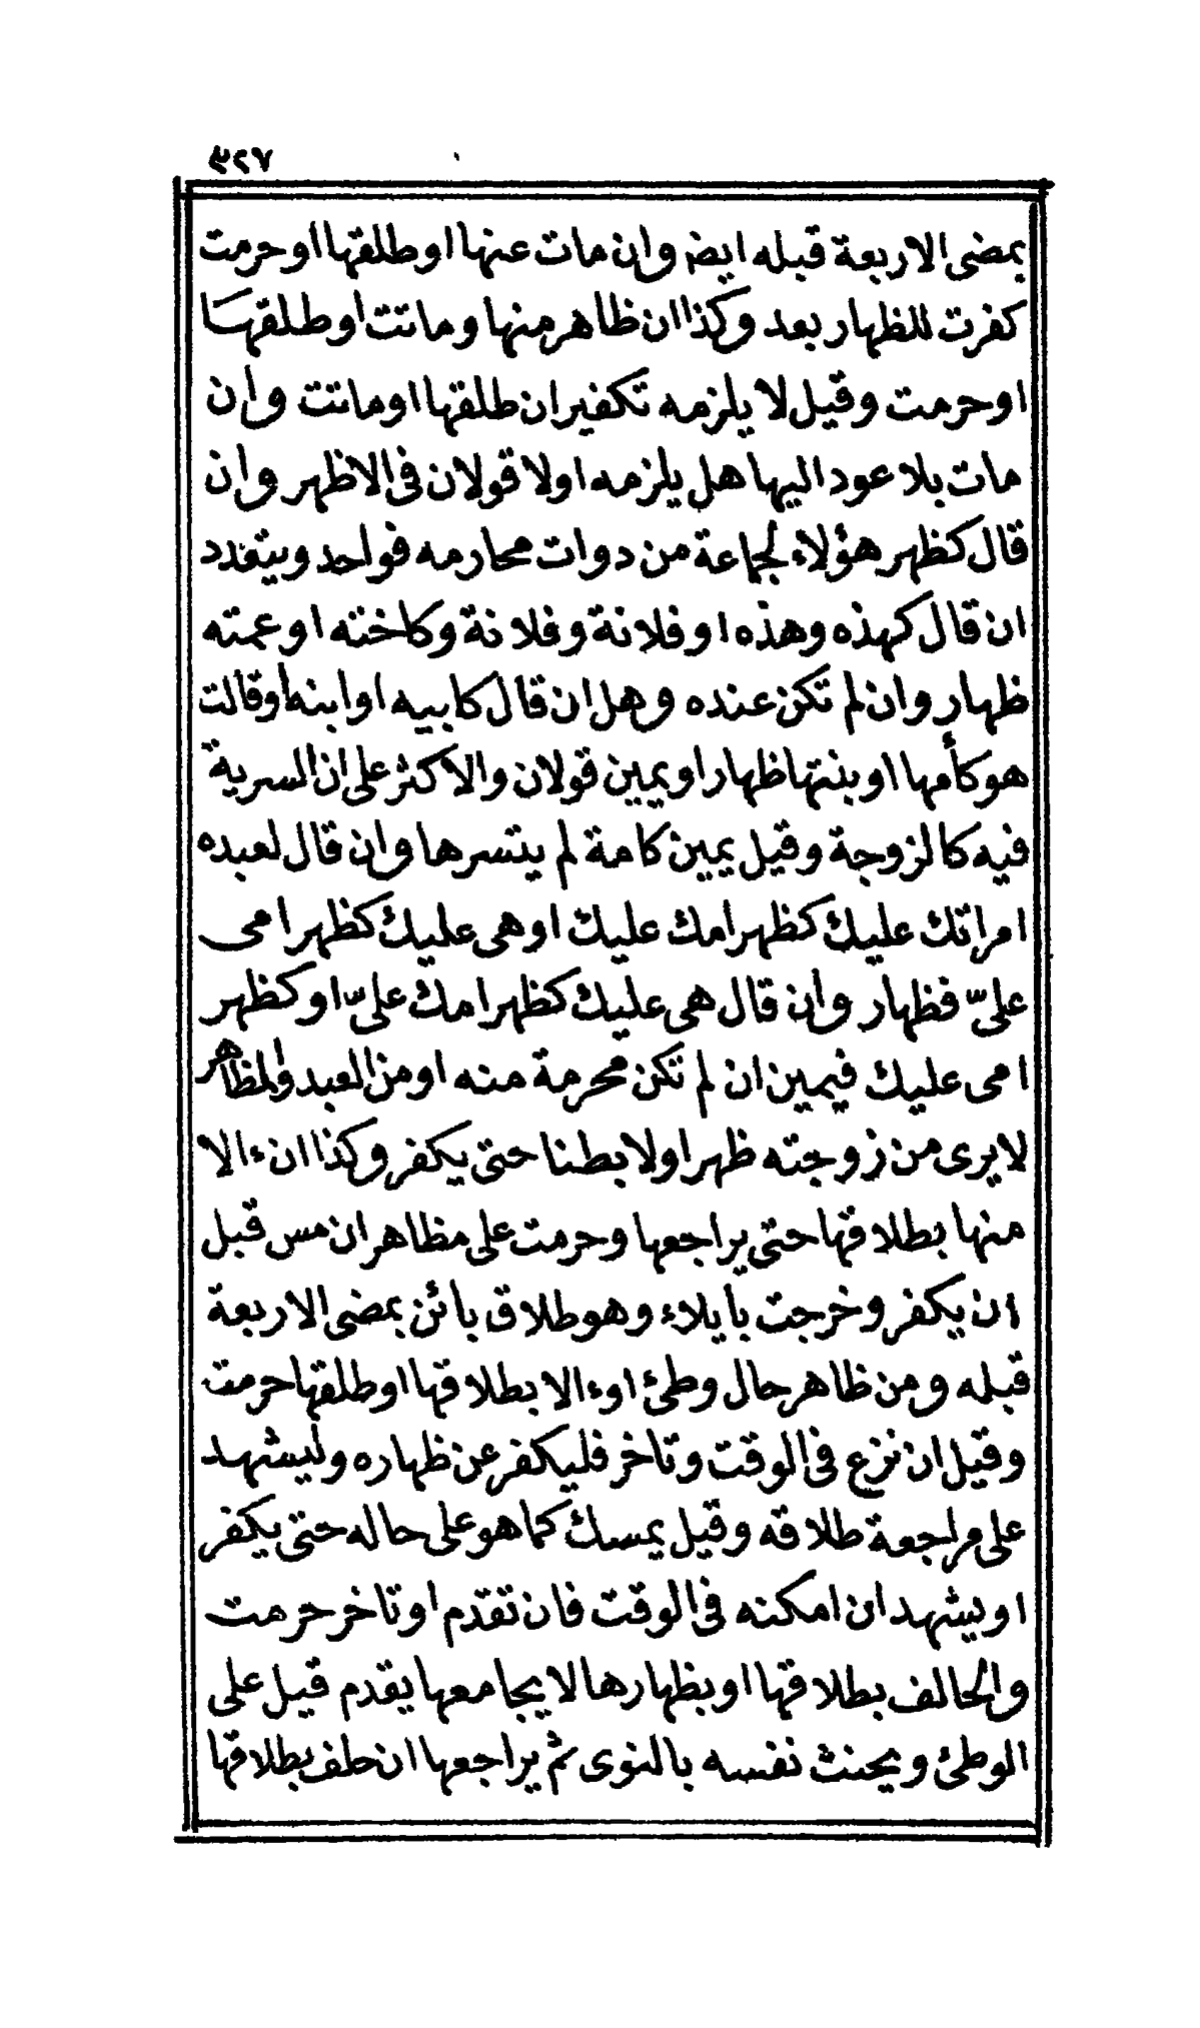 ٣٢٧
بمضى الاربعة قبله ايضا وان مات عنها او طلقها او حرمت
كفرت للظهار بعد وكذا ان ظاهر منها وماتت او طلقها
او حرمت وقيل لا يلزمه تكفير ان طلقها او ماتت وان
مات بلا عود اليها هل يلزمه اولا قولان فى الاظهر وان
قال كظهر هؤلاء لجماعة من دوات محارمه فواحد ويتعدد
ان قال كهذه وهذه او فلانة وفلانة وكاخته او عمته
ظهار وان لم تكن عنده وهل ان قال كابيه او ابنه او قالت
هو كأمها او بنتها ظهار او يمين قولان والاكثر على ان السرية
فيه كالزوجة وقيل يمين كامة لم يتسرها وان قال لعبده
امراتك عليك كظهر امك عليك او هى عليك كظهر امى
علىّ فظهار وان قال هى عليك كظهر امك علىّ او كظهر
امى عليك فيمين ان لم تكن محرمة منه او من العبد والمظاهر
لا يرى من زوجته ظهرا ولا بطنا حتى يكفر وكذا ان ءالا
منها بطلاقها حتى يراجعها وحرمت على مظاهر ان مس قبل
ان يكفر وخرجت بايلاء وهو طلاق بائن بمضى الاربعة
قبله ومن ظاهر حال وطئ او ءالا بطلاقها او طلقها حرمت
وقيل ان نزع فى الوقت وتاخر فليكفر عن ظهاره وليشهد
على مراجعة طلاقه وقيل يمسك كما هو على حاله حتى يكفر
او يشهد ان امكنه فى الوقت فان تقدم او تاخر حرمت
والحالف بطلاقها او بظهارها لا يجامعها يقدم قيل على
الوطئ ويحنث نفسه بالنوى ثم يراجعها ان حلف بطلاقها